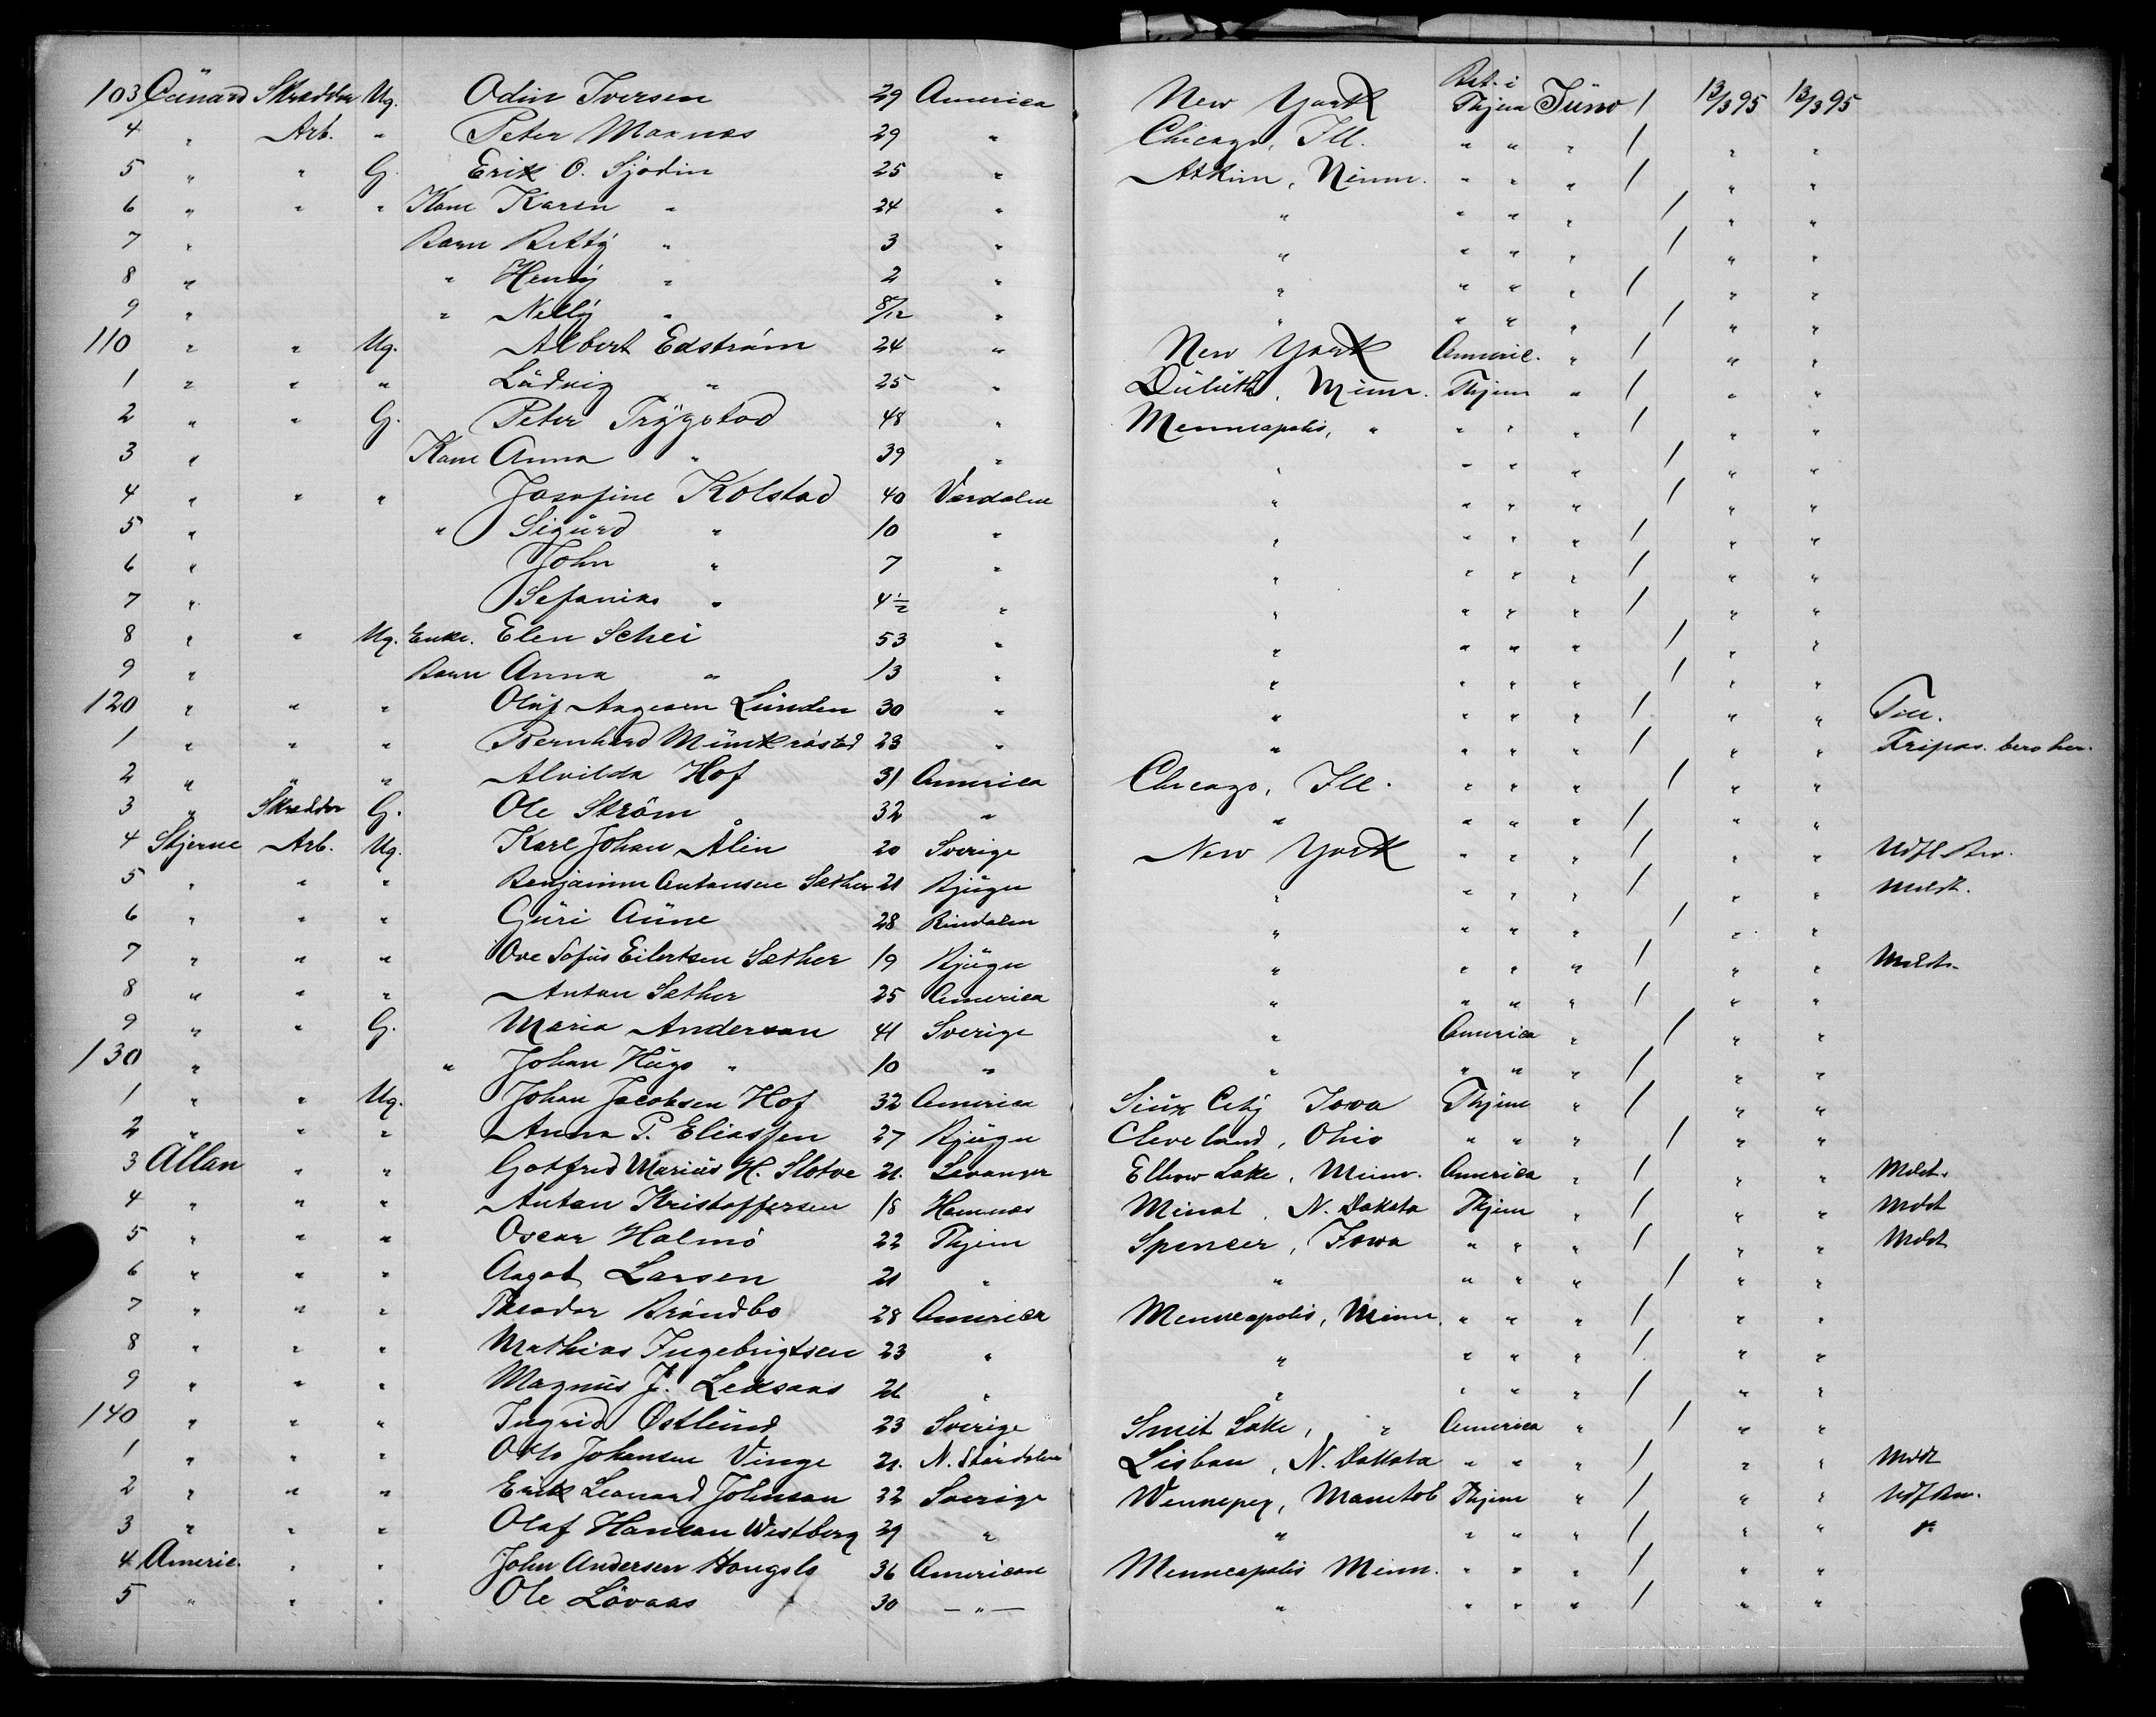 103 Cünard Skrædder Ug. Odin Iversen 29 America New York Bet. i Thjem Jüno / 13/3 95 13/3 95
4 " Arb. " Peter Maanæs 29 " Chicago, Ill. " " " / " "
5 " " G. Erik O. Sjödin 25 " Atkin, Minn. " " " / " "
6 " " " Kone Karen " 24 " " " " " / " "
7 " Barn Betty " 3 " " " " " / " "
8 " " Henry " 2 " " " " " / " "
9 " " Nelly " 8/12 " " " " " / " "
110 " " Ug. Albert Edström 24 " New York Americ. " / " "
1 " " " Lüdvig " 25 " Dülüth, Minn. Thjem " / " "
2 " " G. Peter Trygstad 48 " Menneapolis, " " " " / " "
3 " Kone Anna " 39 " " " " " / " "
4 " " " Josefine Kolstad 40 Værdalen " " " " / " "
5 " " Sigürd " 10 " " " " " / " "
6 " John " 7 " " " " " / " "
7 " Sefanias " 4½ " " " " " / " "
8 " " Ug. Enke. Elen Schei 53 " " " " " / " "
9 " Barn Anna " 13 " " " " " / " "
120 " " " Olüf Aagesen Lünden 30 " " " " " / " "
1 " " " Bernhard Münkrøstad 23 " " " " " / " " Fripas. bero her.
2 " " " Alvilda Hof 31 America Chicago, Ill. " " " / " "
3 " Skrædder G. Ole Ström 32 " " " " " / " "
4 Stjerne Arb. Ug. Karl Johan Ålin 20 Sverige New York " " " / " " Udfl. Bev.
5 " " " Benjamin Antonsen Sæther 21 Bjügn " " " " / " " Meldt.
6 " " " Güri Aüne 28 Rindalen " " " " / " "
7 " " " Ove Sofüs Eilertsen Sæther 19 Bjügn " " " " / " " Meldt.
8 " " " Anton Sæther 25 America " " " " / " "
9 " " G. Maria Anderson 41 Sverige " America " / " "
130 " " Johan Hügo " 10 " " " " " / " "
1 " " Ug. Johan Jacobsen Hof 32 America Siüx City Iova Thjem " / " "
2 " " " Anna P. Eliassen 27 Bjügn Cleveland, Ohio " " " / " "
3 Allan " " Gotfred Mariüs H. Slotve 21. Levanger Elbow Lake, Minn. America " / " " Meldt.
4 " " " Anton Kristoffersen 18 Hemnæs Minot, N. Dakota Thjem " / " " Meldt
5 " " " Oscar Halmö 22 Thjem Spencer, Iowa " " " / " " Meldt
6 " " " Aagot Larsen 21 " " " " " / " "
7 " " " Theodor Bröndbo 28 America Menneapolis, Minn. " " " / " "
8 " " " Mathias Ingebrigtsen 23 " " " " " / " "
9 " " " Magnüs J. Leksaas 21 " " " " " / " "
140 " " " Ingrid Østlünd 23 Sverige Smit Lake, " America " / " "
1 " " " Otto Johansen Vinge 21. N. Stördalen Lisbon, N. Dakota " " " / " " Meldt
2 " " " Erik Leonard Johnson 22 Sverige Wennepeg, Manitob Thjem " / " " Udf. Bev.
3 " " " Olaf Hansan Westberg 29 " " " " " / " " "
4 Americ. " " John Andersen Hongslo 36 American Menneapolis Minn. " " " / " "
5 " " " Ole Lövaas 30 — " — " " " " / " "